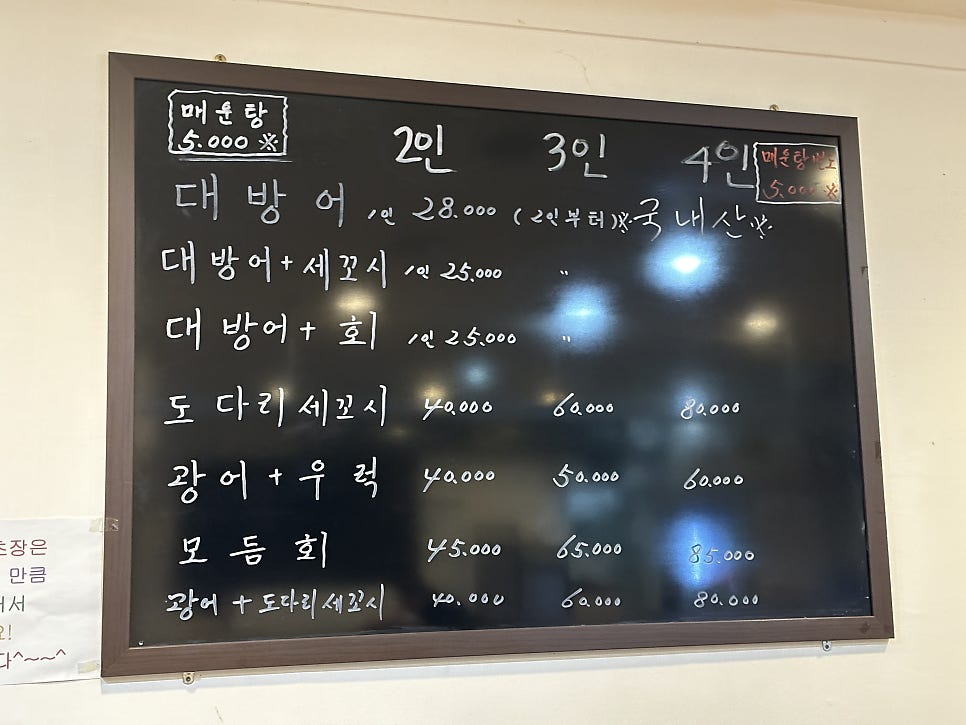 매운탕
5.000 ※
2인 3인 4인
매운탕 별도
5.000 ※
대방어 1인 28.000 (2인부터) ※국내산※
대방어+세꼬시 1인 25.000 〃
대방어+회 1인 25.000 〃
도다리세꼬시 40.000 60.000 80.000
광어+우럭 40.000 50.000 60.000
모듬회 45.000 65.000 85.000
광어+도다리세꼬시 40.000 60.000 80.000
초장은
만큼
다^~~^